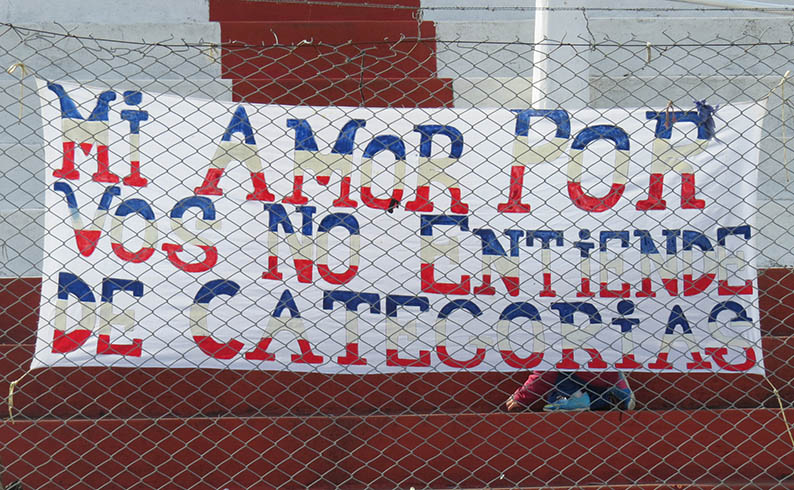 Mi AMOR POR
VOS NO ENTiENDE
DE CATEGORiAS